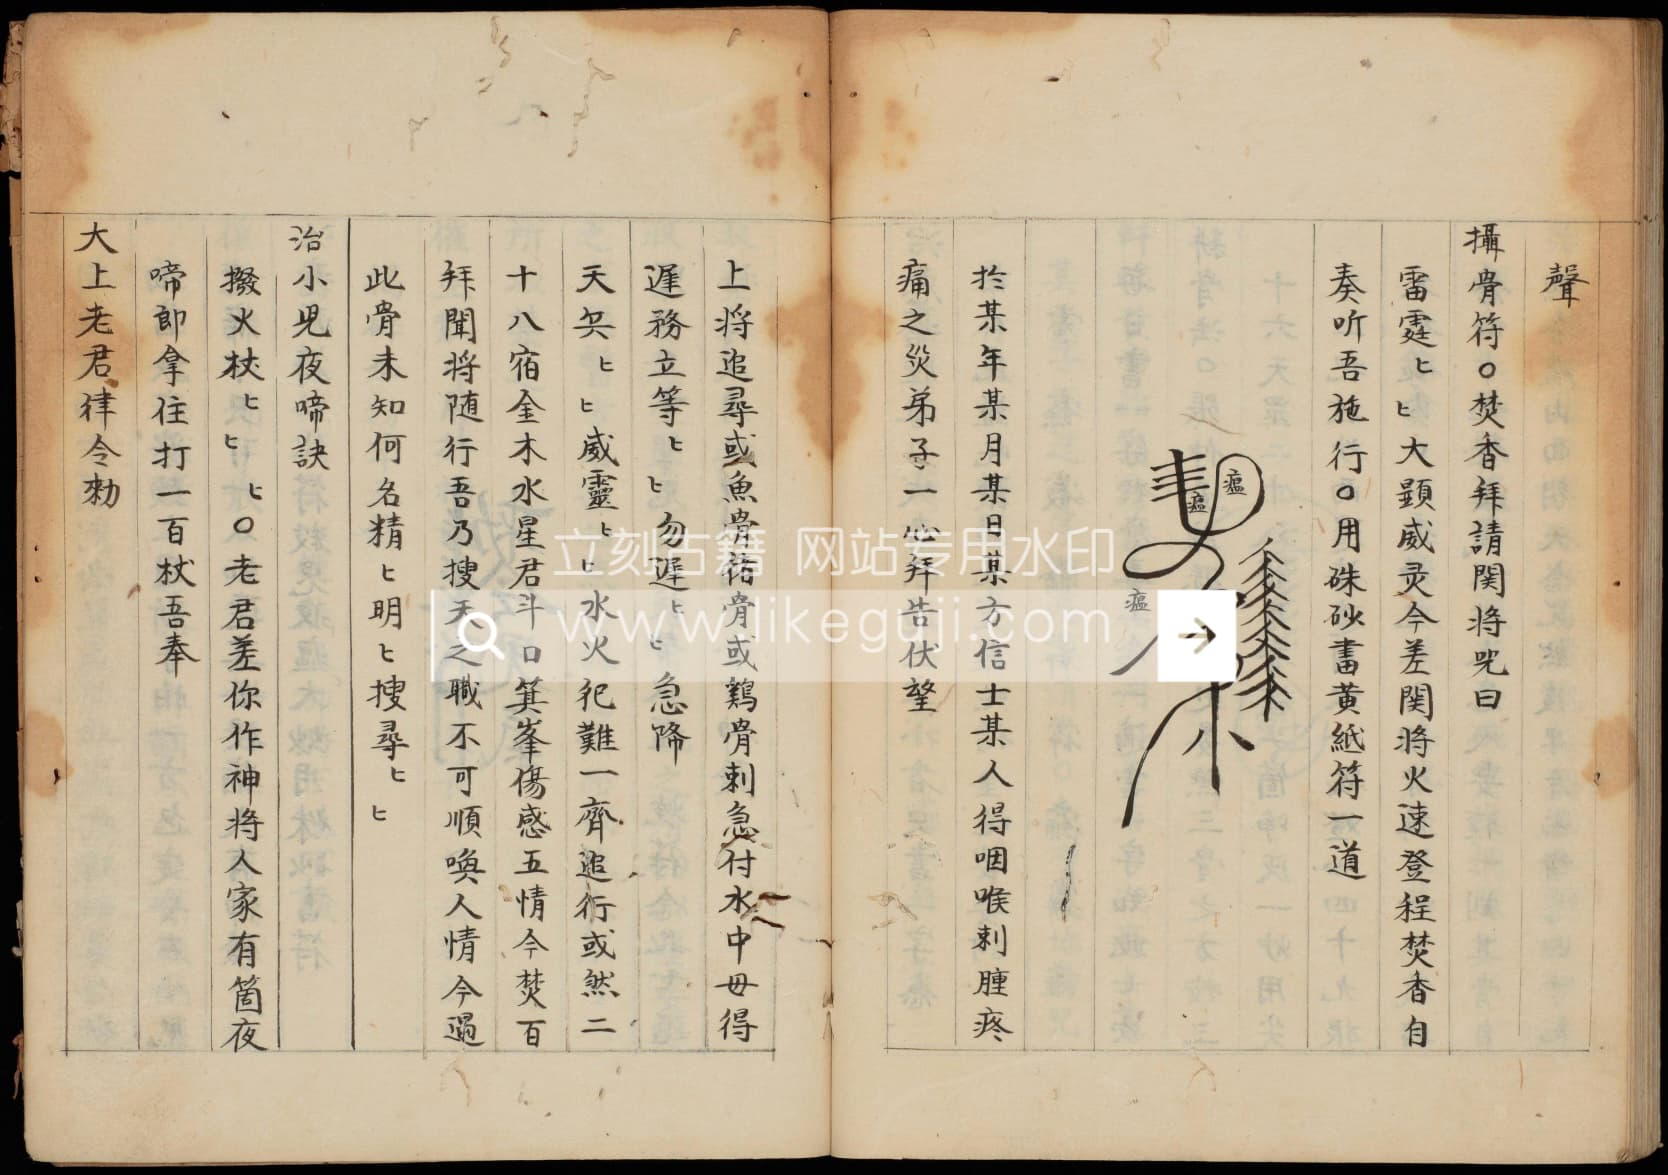 聲
攝骨符〇焚香拜請関将咒曰
雷霆匕匕大顕威灵今差関将火速登程焚香自
奏听吾施行〇用硃砂畵黄紙符一道
瘟
瘟
瘟
扵某年某月某日某方信士某人得咽喉刺腫疼
痛之災弟子一心拜告伏望
上将追尋或魚骨猪骨或鷄骨刺急付水中毋得
遅務立等匕匕勿遅匕匕急降
天矣匕匕威靈匕匕水火犯難一齊追行或然二
十八宿金木水星君斗口箕峯傷感五情今焚百
拜聞将随行吾乃搜天之職不可順喚人情今過
此骨未知何名精匕明匕搜尋匕匕
治小児夜啼訣
撥火杖匕匕匕〇老君差你作神将人家有箇夜
啼郎拿住打一百杖吾奉
大上老君律令勑
立刻古籍 网站专用水印
www.likeguji.com